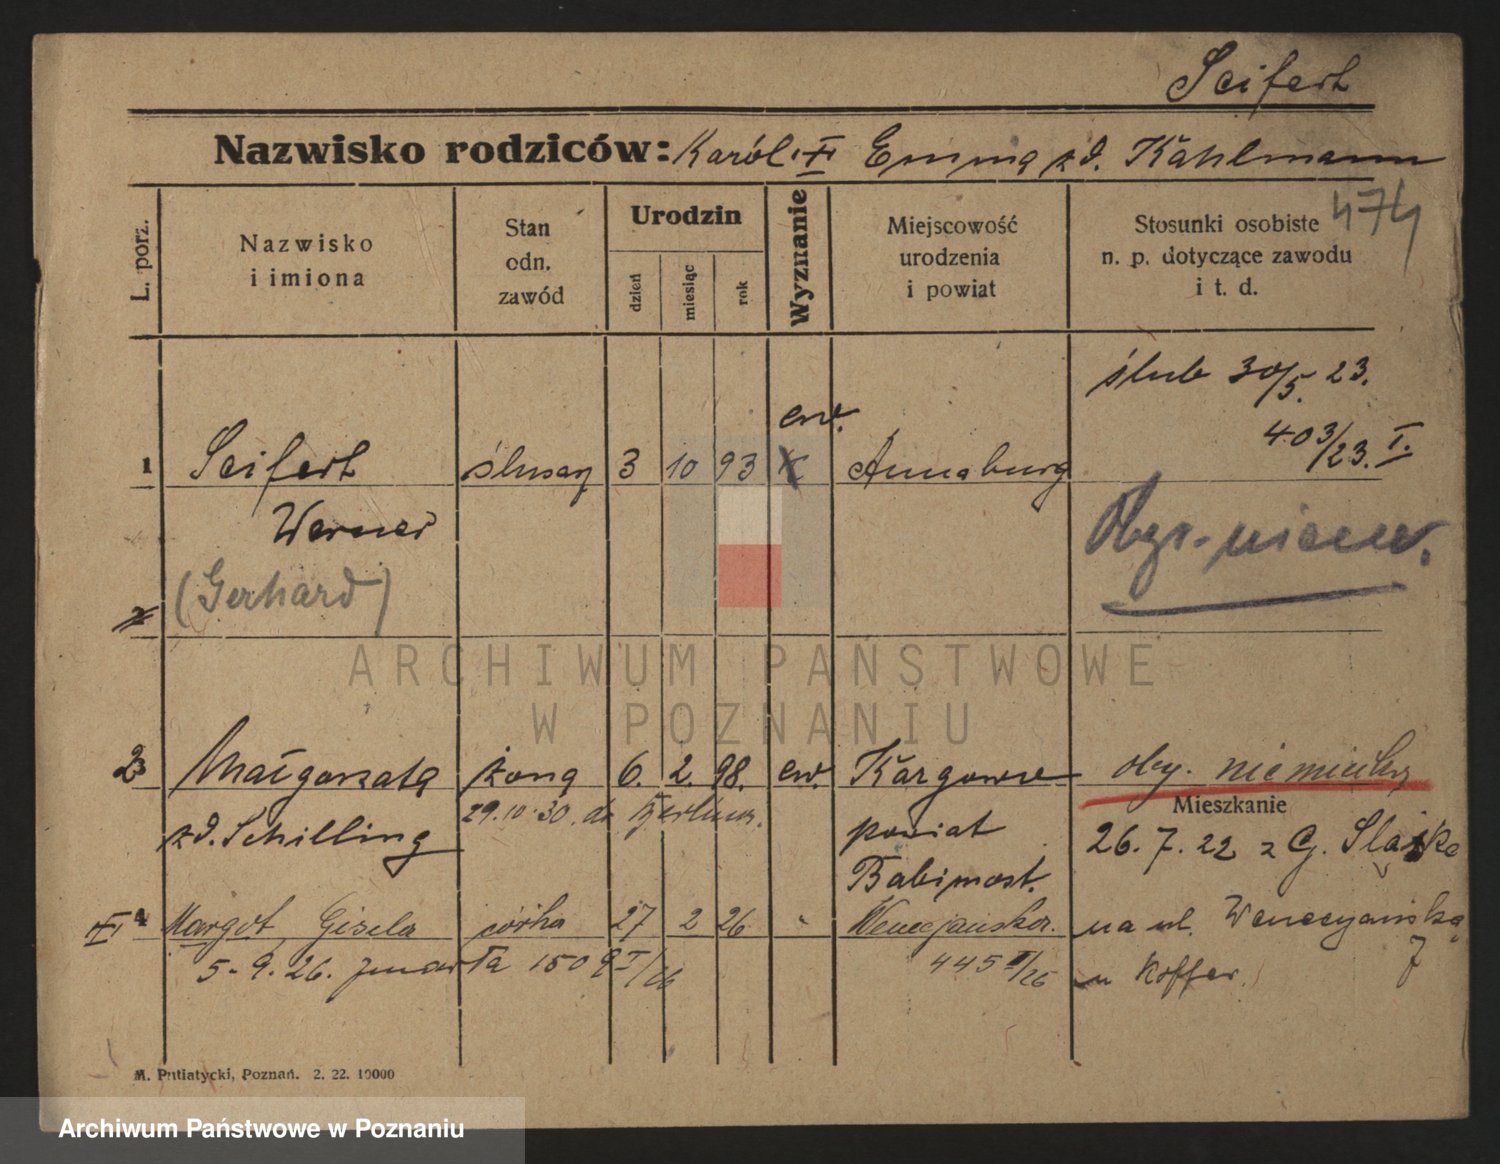 Seifert
Nazwisko rodziców: Karól i Emma z d. Kahlmann
474
L. porz.
Nazwisko i imiona
Stan odn. zawód
Urodzin
dzień
miesiąc
rok
Wyznanie
Miejscowość urodzenia i powiat
Stosunki osobiste n. p. dotyczące zawodu i t. d.
ślub 30/5. 23.
403/23. I.
ew.
1 Seifert ślusarz 3 10 93 Annaburg
Werner
(Gerhard)
2
Małgorzata żona 6. 2. 98. ew. Kargowa oby. niemiecka
29.10.30. do Berlina.
Mieszkanie
z d. Schilling powiat 26. 7. 22 z G. Śląska
Babimost.
4 Margot Gisela córka 27 2 26 " Wenecjańska. na ul. Wenecyańska 7
5. 9. 26. zmarła 1509 I/26 445 I/26 u Koffer.
M. Putiatycki, Poznań. 2. 22. 10000
ARCHIWUM PAŃSTWOWE
W POZNANIU
Archiwum Państwowe w Poznaniu